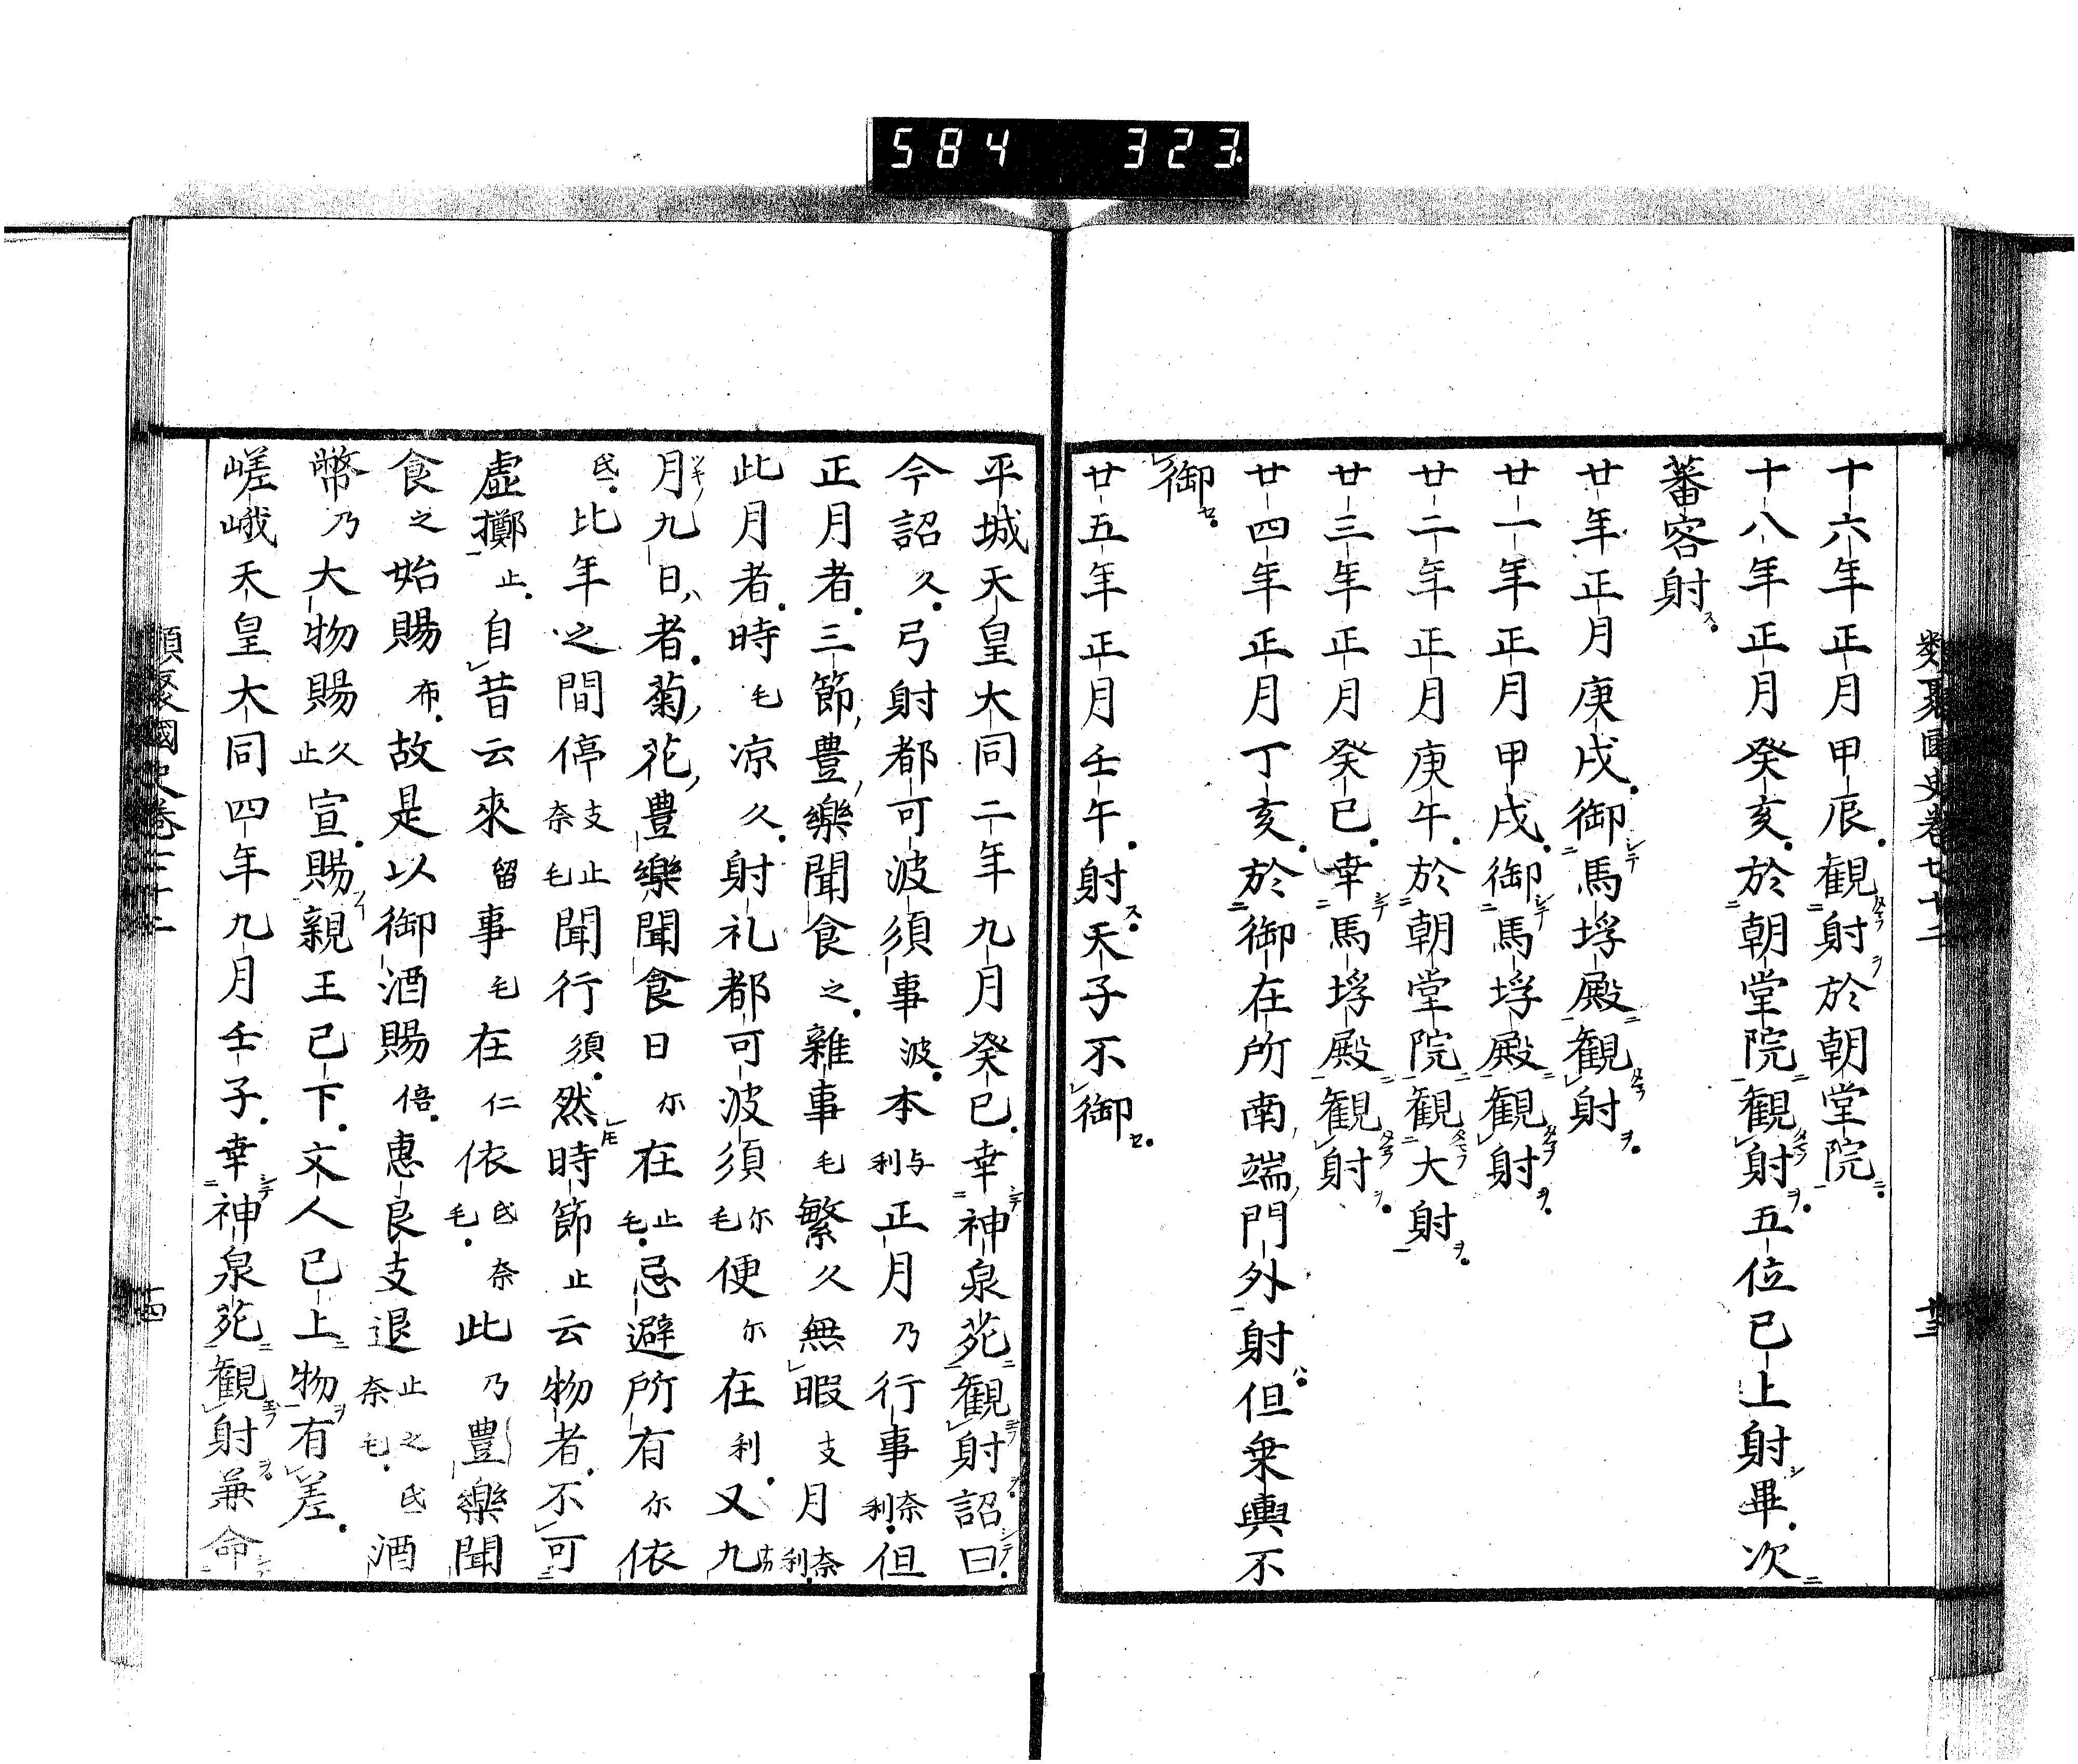 584 323
類聚國史卷七十二
廿三
十六年正月甲辰観射於朝堂院
十八年正月癸亥於朝堂院観射五位已上射畢次
蕃客射
廿年正月庚戌御馬埓殿観射
廿一年正月甲戌御馬埓殿観射
廿二年正月庚午於朝堂院観大射
廿三年正月癸巳幸馬埓殿観射
廿四年正月丁亥於御在所南端門外射但乗輿不
御
廿五年正月壬午射天子不御
平城天皇大同二年九月癸巳幸神泉苑観射詔曰
今詔久弓射都可波須事波本与利正月乃行事奈利但
正月者三節豊樂聞食之雜事毛繁久無暇支月奈利
此月者時毛凉久射礼都可波須尓毛便尓在利又九
月九日者菊花豊樂聞食日尓在止毛忌避所有尓依
氐比年之間停支奈止毛聞行須然時節止云物者不可
虚擲止自昔云來留事毛在仁依氐奈毛此乃豊樂聞
食之始賜布故是以御酒賜倍惠良支退止之氐奈毛酒
幣乃大物賜久止宣賜親王已下文人已上物有差
嵯峨天皇大同四年九月壬子幸神泉苑観射兼命
類聚國史卷七十二